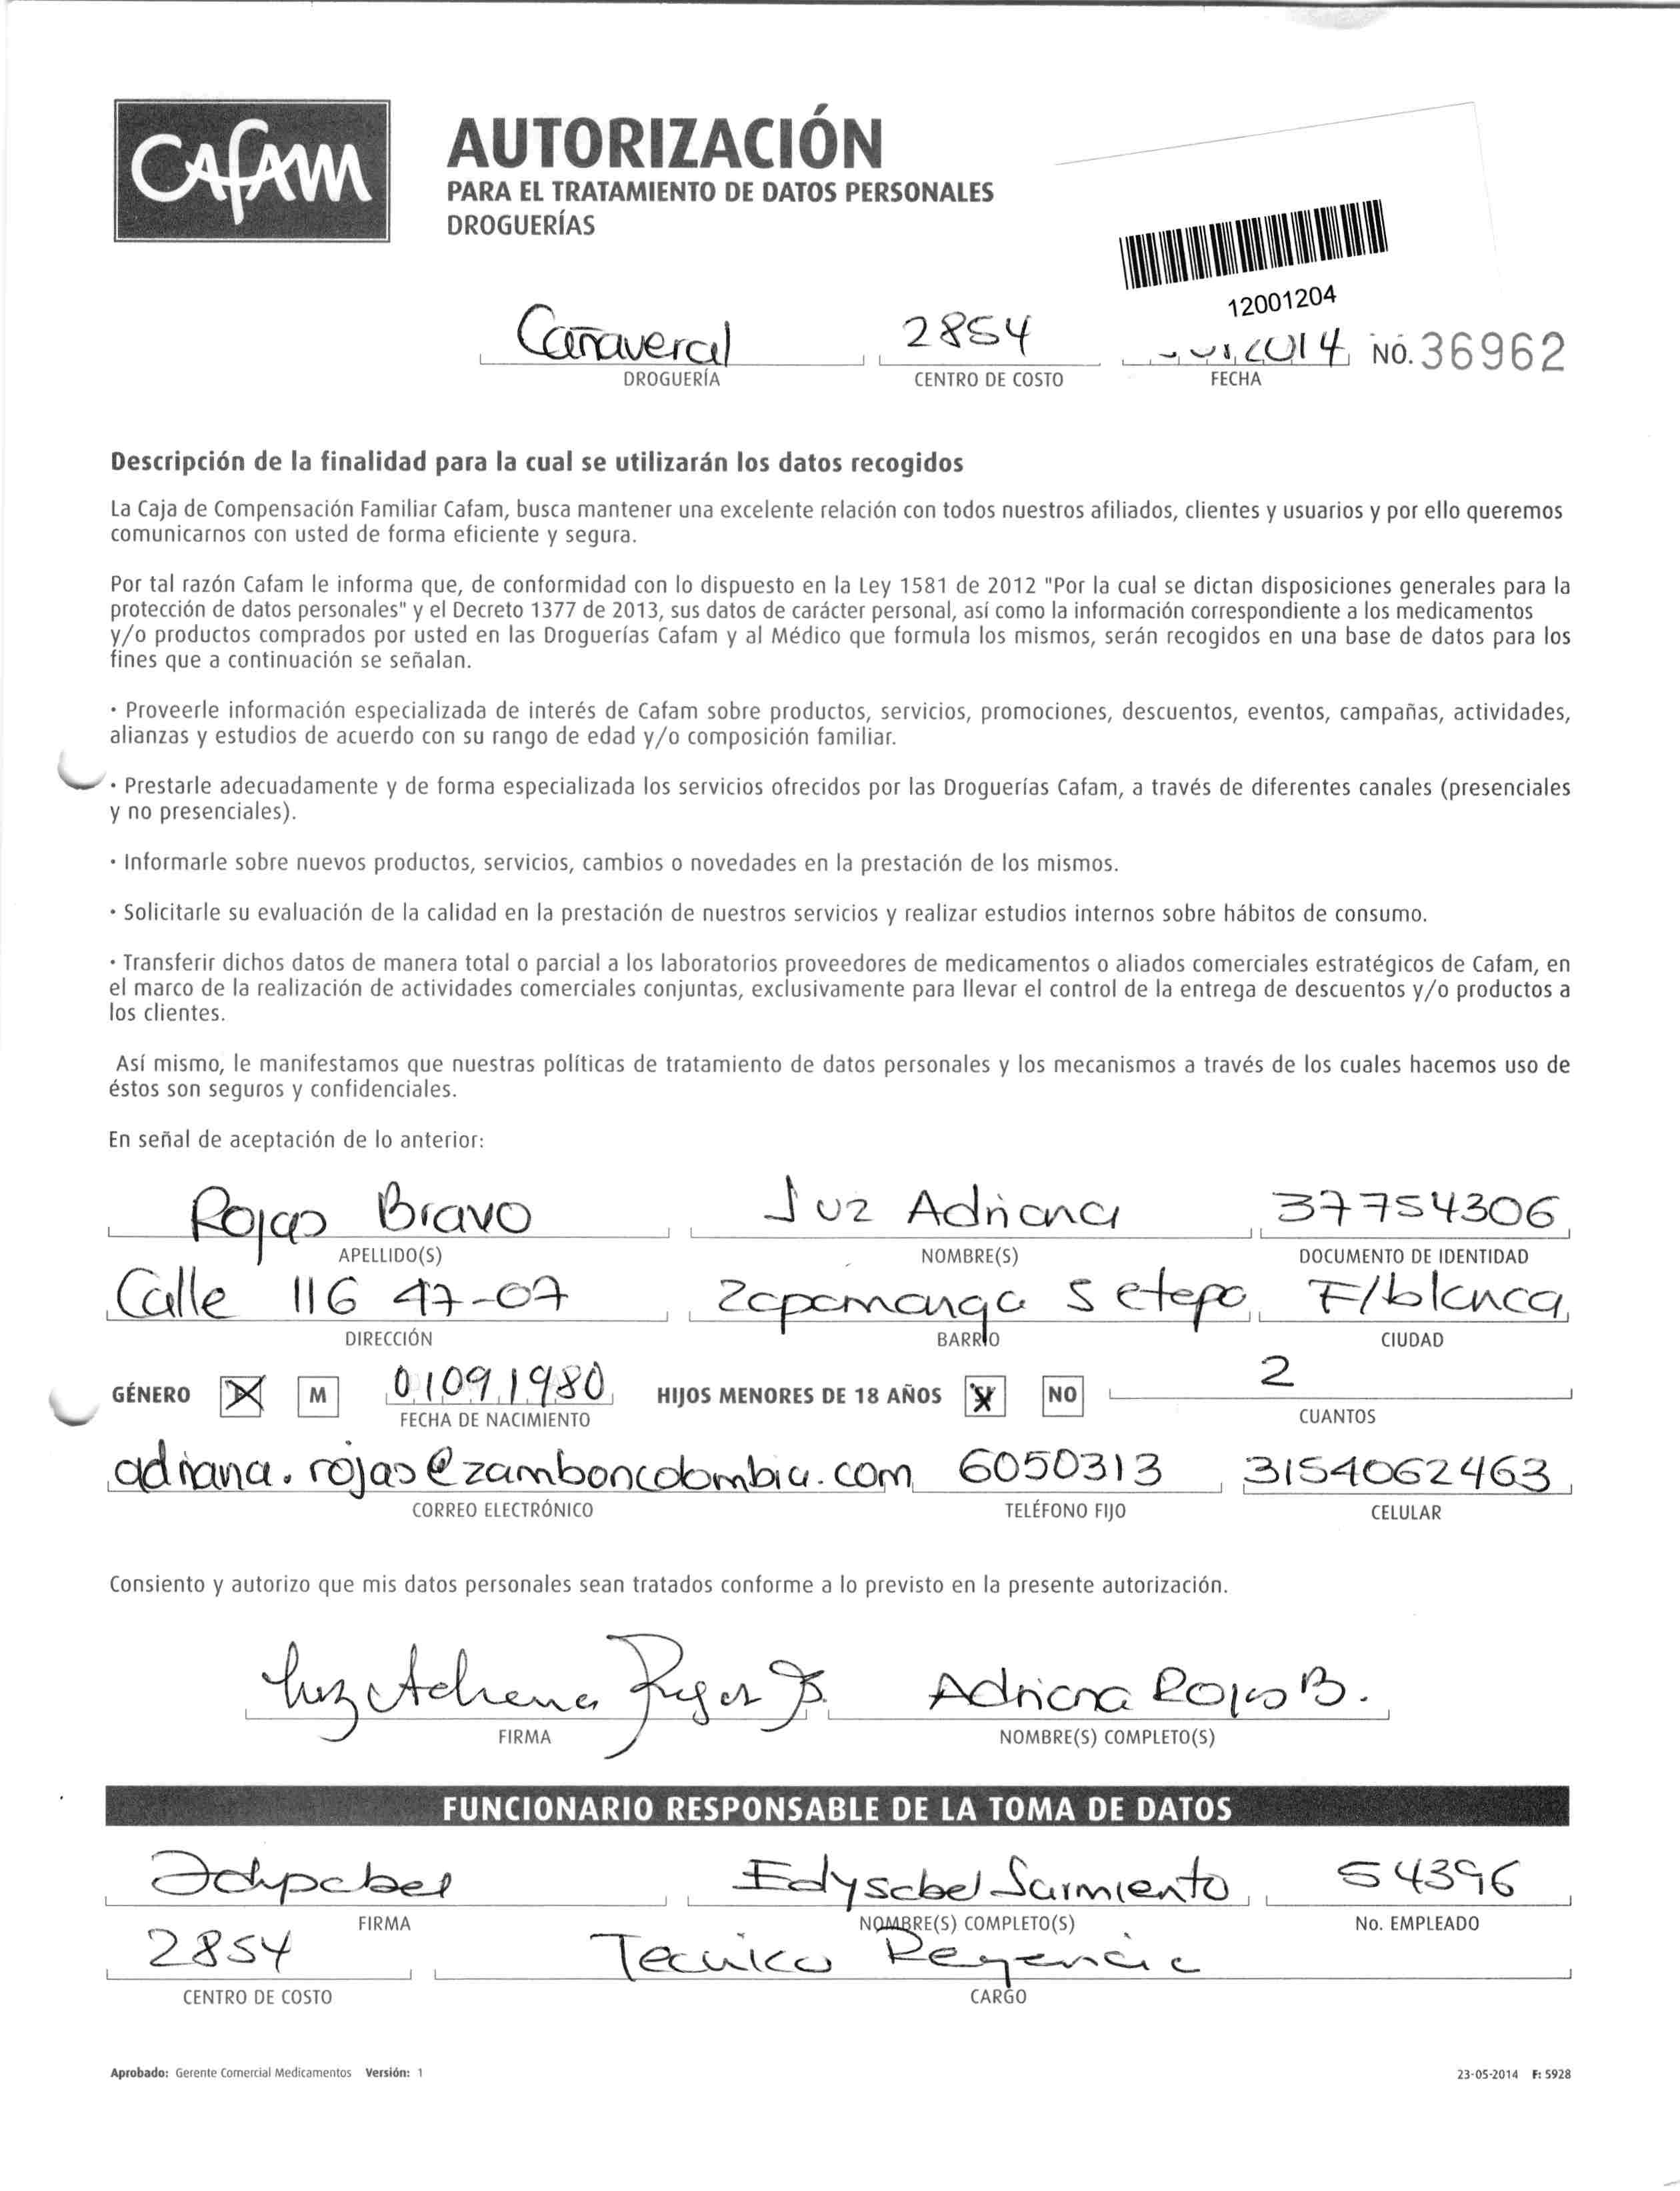 Cafam
AUTORIZACIÓN
PARA EL TRATAMIENTO DE DATOS PERSONALES
DROGUERÍAS
12001204
Cañaveral 2854 2014 NO. 36962
DROGUERÍA CENTRO DE COSTO FECHA
Descripción de la finalidad para la cual se utilizarán los datos recogidos
La Caja de Compensación Familiar Cafam, busca mantener una excelente relación con todos nuestros afiliados, clientes y usuarios y por ello queremos
comunicarnos con usted de forma eficiente y segura.
Por tal razón Cafam le informa que, de conformidad con lo dispuesto en la Ley 1581 de 2012 "Por la cual se dictan disposiciones generales para la
protección de datos personales" y el Decreto 1377 de 2013, sus datos de carácter personal, así como la información correspondiente a los medicamentos
y/o productos comprados por usted en las Droguerías Cafam y al Médico que formula los mismos, serán recogidos en una base de datos para los
fines que a continuación se señalan.
· Proveerle información especializada de interés de Cafam sobre productos, servicios, promociones, descuentos, eventos, campañas, actividades,
alianzas y estudios de acuerdo con su rango de edad y/o composición familiar.
· Prestarle adecuadamente y de forma especializada los servicios ofrecidos por las Droguerías Cafam, a través de diferentes canales (presenciales
y no presenciales).
· Informarle sobre nuevos productos, servicios, cambios o novedades en la prestación de los mismos.
· Solicitarle su evaluación de la calidad en la prestación de nuestros servicios y realizar estudios internos sobre hábitos de consumo.
· Transferir dichos datos de manera total o parcial a los laboratorios proveedores de medicamentos o aliados comerciales estratégicos de Cafam, en
el marco de la realización de actividades comerciales conjuntas, exclusivamente para llevar el control de la entrega de descuentos y/o productos a
los clientes.
Así mismo, le manifestamos que nuestras políticas de tratamiento de datos personales y los mecanismos a través de los cuales hacemos uso de
éstos son seguros y confidenciales.
En señal de aceptación de lo anterior:
Rojas Bravo Luz Adriana 37754306
APELLIDO(S) NOMBRE(S) DOCUMENTO DE IDENTIDAD
Calle 116 47-07 Zapamanga 5 etapa F/blanca
DIRECCIÓN BARRIO CIUDAD
GÉNERO X M 01091980 HIJOS MENORES DE 18 AÑOS X NO 2
FECHA DE NACIMIENTO CUANTOS
adriana.rojas@zamboncolombia.com 6050313 3154062463
CORREO ELECTRÓNICO TELÉFONO FIJO CELULAR
Consiento y autorizo que mis datos personales sean tratados conforme a lo previsto en la presente autorización.
Luz Adriana Rojas B. Adriana Rojas B.
FIRMA NOMBRE(S) COMPLETO(S)
FUNCIONARIO RESPONSABLE DE LA TOMA DE DATOS
Edysabel Sarmiento 54396
FIRMA NOMBRE(S) COMPLETO(S) No. EMPLEADO
2854 Tecnico Regencia
CENTRO DE COSTO CARGO
Aprobado: Gerente Comercial Medicamentos Versión: 1 23-05-2014 F: 5928